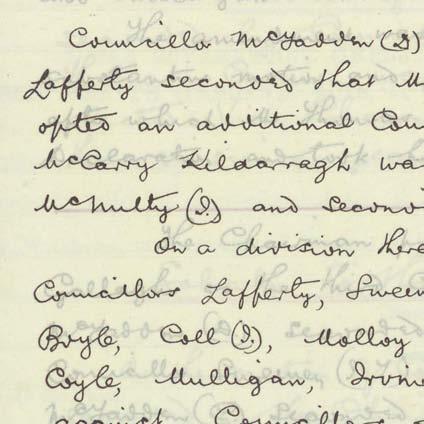 Councillor McFadden (D)
Lafferty seconded that M
opted an additional Cou
McCarry Kildarragh wa
McNulty (J.) and second
On a division there
Councillors Lafferty, Sween
Boyle, Coll (D.), Molloy
Coyle, Mulligan, Irvine
against Councillors